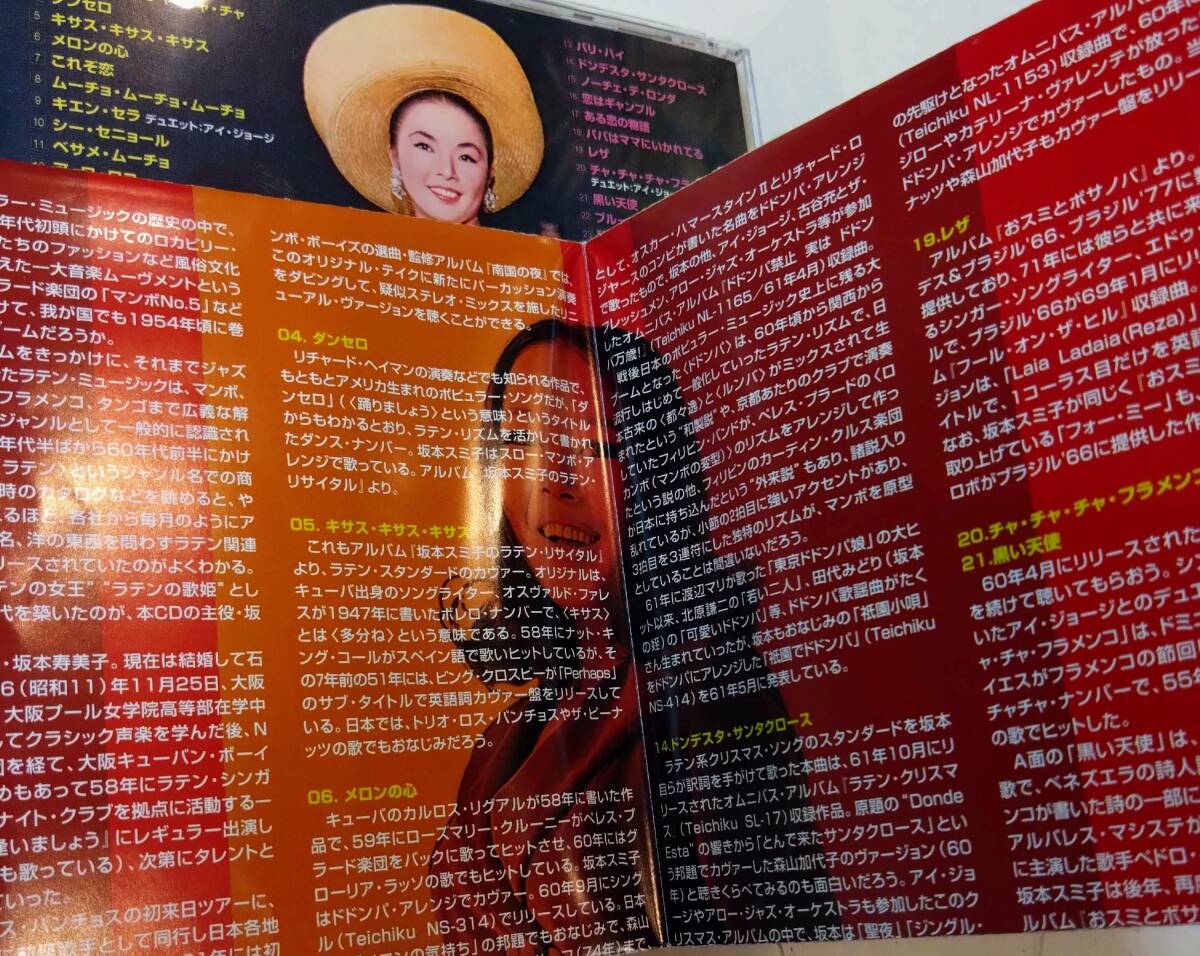 5 キサス・キサス・キサス
6 メロンの心
7 これぞ恋
8 ムーチョ・ムーチョ・ムーチョ
9 キエン・セラ デュエット:アイ・ジョージ
10 シー・セニョール
11 ベサメ・ムーチョ
13 バリ・ハイ
14 ドンデスタ・サンタクロース
15 ノーチェ・デ・ロンダ
16 恋はギャンブル
17 ある恋の物語
18 パパはママにいかれてる
19 レザ
20 チャ・チャ・チャ・フラ
デュエット:アイ・ジョー
21 黒い天使
22 ブルー
ラー・ミュージックの歴史の中で、
年代初頭にかけてのロカビリー・
たちのファッションなど風俗文化
えた一大音楽ムーヴメントという
ラード楽団の「マンボNo.5」など
けて、我が国でも1954年頃に巻
ームだろうか。
ムをきっかけに、それまでジャズ
たラテン・ミュージックは、マンボ、
フラメンコ、タンゴまで広義な解
ジャンルとして一般的に認識され
年代半ばから60年代前半にかけ
ラテン〉というジャンル名での商
時のカタログなどを眺めると、や
えるほど、各社から毎月のようにア
名、洋の東西を問わずラテン関連
リースされていたのがよくわかる。
テンの女王” “ラテンの歌姫”とし
代を築いたのが、本CDの主役・坂
・坂本寿美子。現在は結婚して石
6(昭和11)年11月25日、大阪
大阪プール女学院高等部在学中
してクラシック声楽を学んだ後、N
団を経て、大阪キューバン・ボーイ
めもあって58年にラテン・シンガ
ナイト・クラブを拠点に活動する一
逢いましょう』にレギュラー出演し
も歌っている)、次第にタレントと
いった。
ス・パンチョスの初来日ツアーに、
前座歌手として同行し日本各地
ンボ・ボーイズの選曲・監修アルバム『南国の夜』では、
このオリジナル・テイクに新たにパーカッション演奏
をダビングして、疑似ステレオ・ミックスを施したリニ
ューアル・ヴァージョンを聴くことができる。
04. ダンセロ
リチャード・ヘイマンの演奏などでも知られる作品で、
もともとアメリカ生まれのポピュラー・ソングだが、「ダ
ンセロ」(〈踊りましょう〉という意味)というタイトル
からもわかるとおり、ラテン・リズムを活かして書かれ
たダンス・ナンバー。坂本スミ子はスロー・マンボ・ア
レンジで歌っている。アルバム『坂本スミ子のラテン・
リサイタル』より。
05. キサス・キサス・キサス
これもアルバム『坂本スミ子のラテン・リサイタル』
より、ラテン・スタンダードのカヴァー。オリジナルは、
キューバ出身のソングライター、オスヴァルド・ファレ
スが1947年に書いたボレロ・ナンバーで、〈キサス〉
とは〈多分ね〉という意味である。58年にナット・キ
ング・コールがスペイン語で歌いヒットしているが、そ
の7年前の51年には、ビング・クロスビーが「Perhaps」
のサブ・タイトルで英語詞カヴァー盤をリリースして
いる。日本では、トリオ・ロス・パンチョスやザ・ピーナ
ッツの歌でもおなじみだろう。
06. メロンの心
キューバのカルロス・リグアルが58年に書いた作
品で、59年にローズマリー・クルーニーがペレス・プ
ラード楽団をバックに歌ってヒットさせ、60年にはグ
ローリア・ラッソの歌でもヒットしている。坂本スミ子
はドドンパ・アレンジでカヴァー。60年9月にシング
ル(Teichiku NS-314)でリリースしている。日本
の邦題でもおなじみで、森山
として、オスカー・ハマースタインⅡとリチャード・ロ
ジャースのコンビが書いた名曲をドドンパ・アレンジ
で歌ったもので、坂本の他、アイ・ジョージ、古谷充とザ・
フレッシュメン、アロー・ジャズ・オーケストラ等が参加
したオムニバス・アルバム『ドドンパ禁止 実は ドドン
パ万歳!』(Teichiku NL-1165/61年4月)収録曲。
戦後日本のポピュラー・ミュージック史上に残る大
ブームとなった〈ドドンパ〉は、60年頃から関西から
流行しはじめて一般化していったラテン・リズムで、日
本古来の〈都々逸〉と〈ルンバ〉がミックスされて生
まれたという“和製説”や、京都あたりのクラブで演奏
していたフィリピン・バンドが、ペレス・プラードの〈ロ
カンボ(マンボの変型)〉のリズムをアレンジして作っ
たという説の他、フィリピンのカーディン・クルス楽団
が日本に持ち込んだという“外来説”もあり、諸説入り
乱れているが、小節の2拍目に強いアクセントがあり、
3拍目を3連符にした独特のリズムが、マンボを原型
としていることは間違いないだろう。
61年に渡辺マリが歌った「東京ドドンパ娘」の大ヒ
ット以来、北原謙二の「若い二人」、田代みどり(坂本
の姪)の「可愛いドドンパ」等、ドドンパ歌謡曲がたく
さん生まれていったが、坂本もおなじみの「祇園小唄」
をドドンパにアレンジした「祇園でドドンパ」(Teichiku
NS-414)を61年5月に発表している。
14.ドンデスタ・サンタクロース
ラテン系クリスマス・ソングのスタンダードを坂本
自らが訳詞を手がけて歌った本曲は、61年10月にリ
リースされたオムニバス・アルバム『ラテン・クリスマ
ス』(Teichiku SL-17)収録作品。原題の“Donde
Esta”の響きから「とんで来たサンタクロース」とい
う邦題でカヴァーした森山加代子のヴァージョン(60
年)と聴きくらべてみるのも面白いだろう。アイ・ジョ
ージやアロー・ジャズ・オーケストラも参加したこのク
リスマス・アルバムの中で、坂本は「聖夜」「ジングル・
の先駆けとなったオムニバス・アルバ
(Teichiku NL-1153)収録曲で、60年に
ジローやカテリーナ・ヴァレンテが放った
ドドンパ・アレンジでカヴァーしたもの。当
ナッツや森山加代子もカヴァー盤をリリー
19.レザ
アルバム『おスミとボサノバ』より。
デス&ブラジル'66、ブラジル'77に
提供しており、71年には彼らと共に来
るシンガー・ソングライター、エドゥ・
ルで、ブラジル'66が69年1月にリリ
ム『フール・オン・ザ・ヒル』収録曲。
ジョンは、「Lala Ladaia(Reza)」
イトルで、1コーラス目だけを英語
なお、坂本スミ子が同じく『おスミ
取り上げている「フォー・ミー」も
ロボがブラジル'66に提供した作
20.チャ・チャ・チャ・フラメンコ
21.黒い天使
60年4月にリリースされた
を続けて聴いてもらおう。シン
いたアイ・ジョージとのデュエ
ャ・チャ・フラメンコ」は、ドミ
イエスがフラメンコの節回
チャチャ・ナンバーで、55
の歌でヒットした。
A面の「黒い天使」は、
歌で、ベネズエラの詩人
ンコが書いた詩の一部に
アルバレス・マシステが
に主演した歌手ペドロ・
坂本スミ子は後年、再
ルバム『おスミとボサ